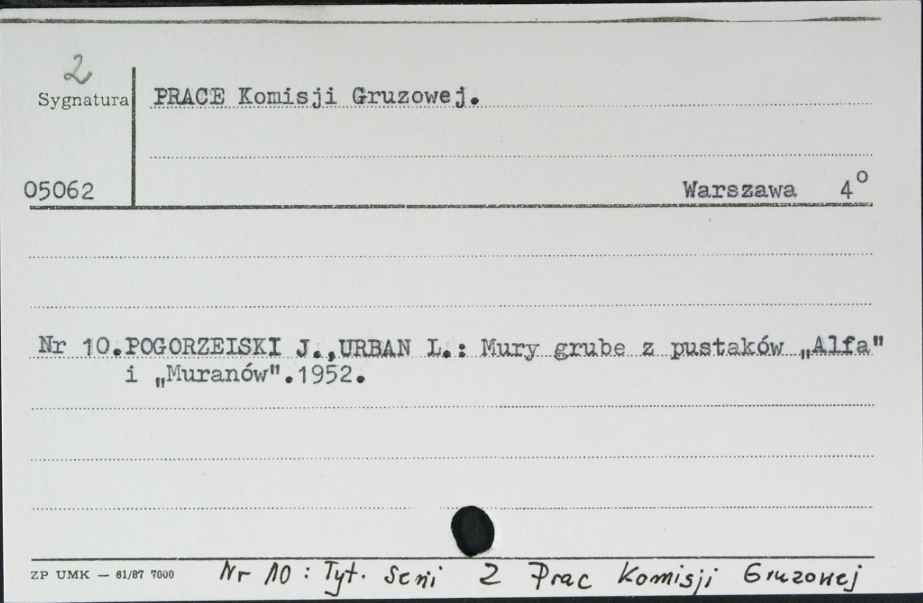 2
Sygnatura PRACE Komisji Gruzowej.
05062 Warszawa 4°
Nr 10.POGORZELSKI J.,URBAN L.: Mury grube z pustaków „Alfa"
i „Muranów".1952.
ZP UMK — 61/87 7000 Nr 10 : Tyt. Serii Z Prac Komisji Gruzowej